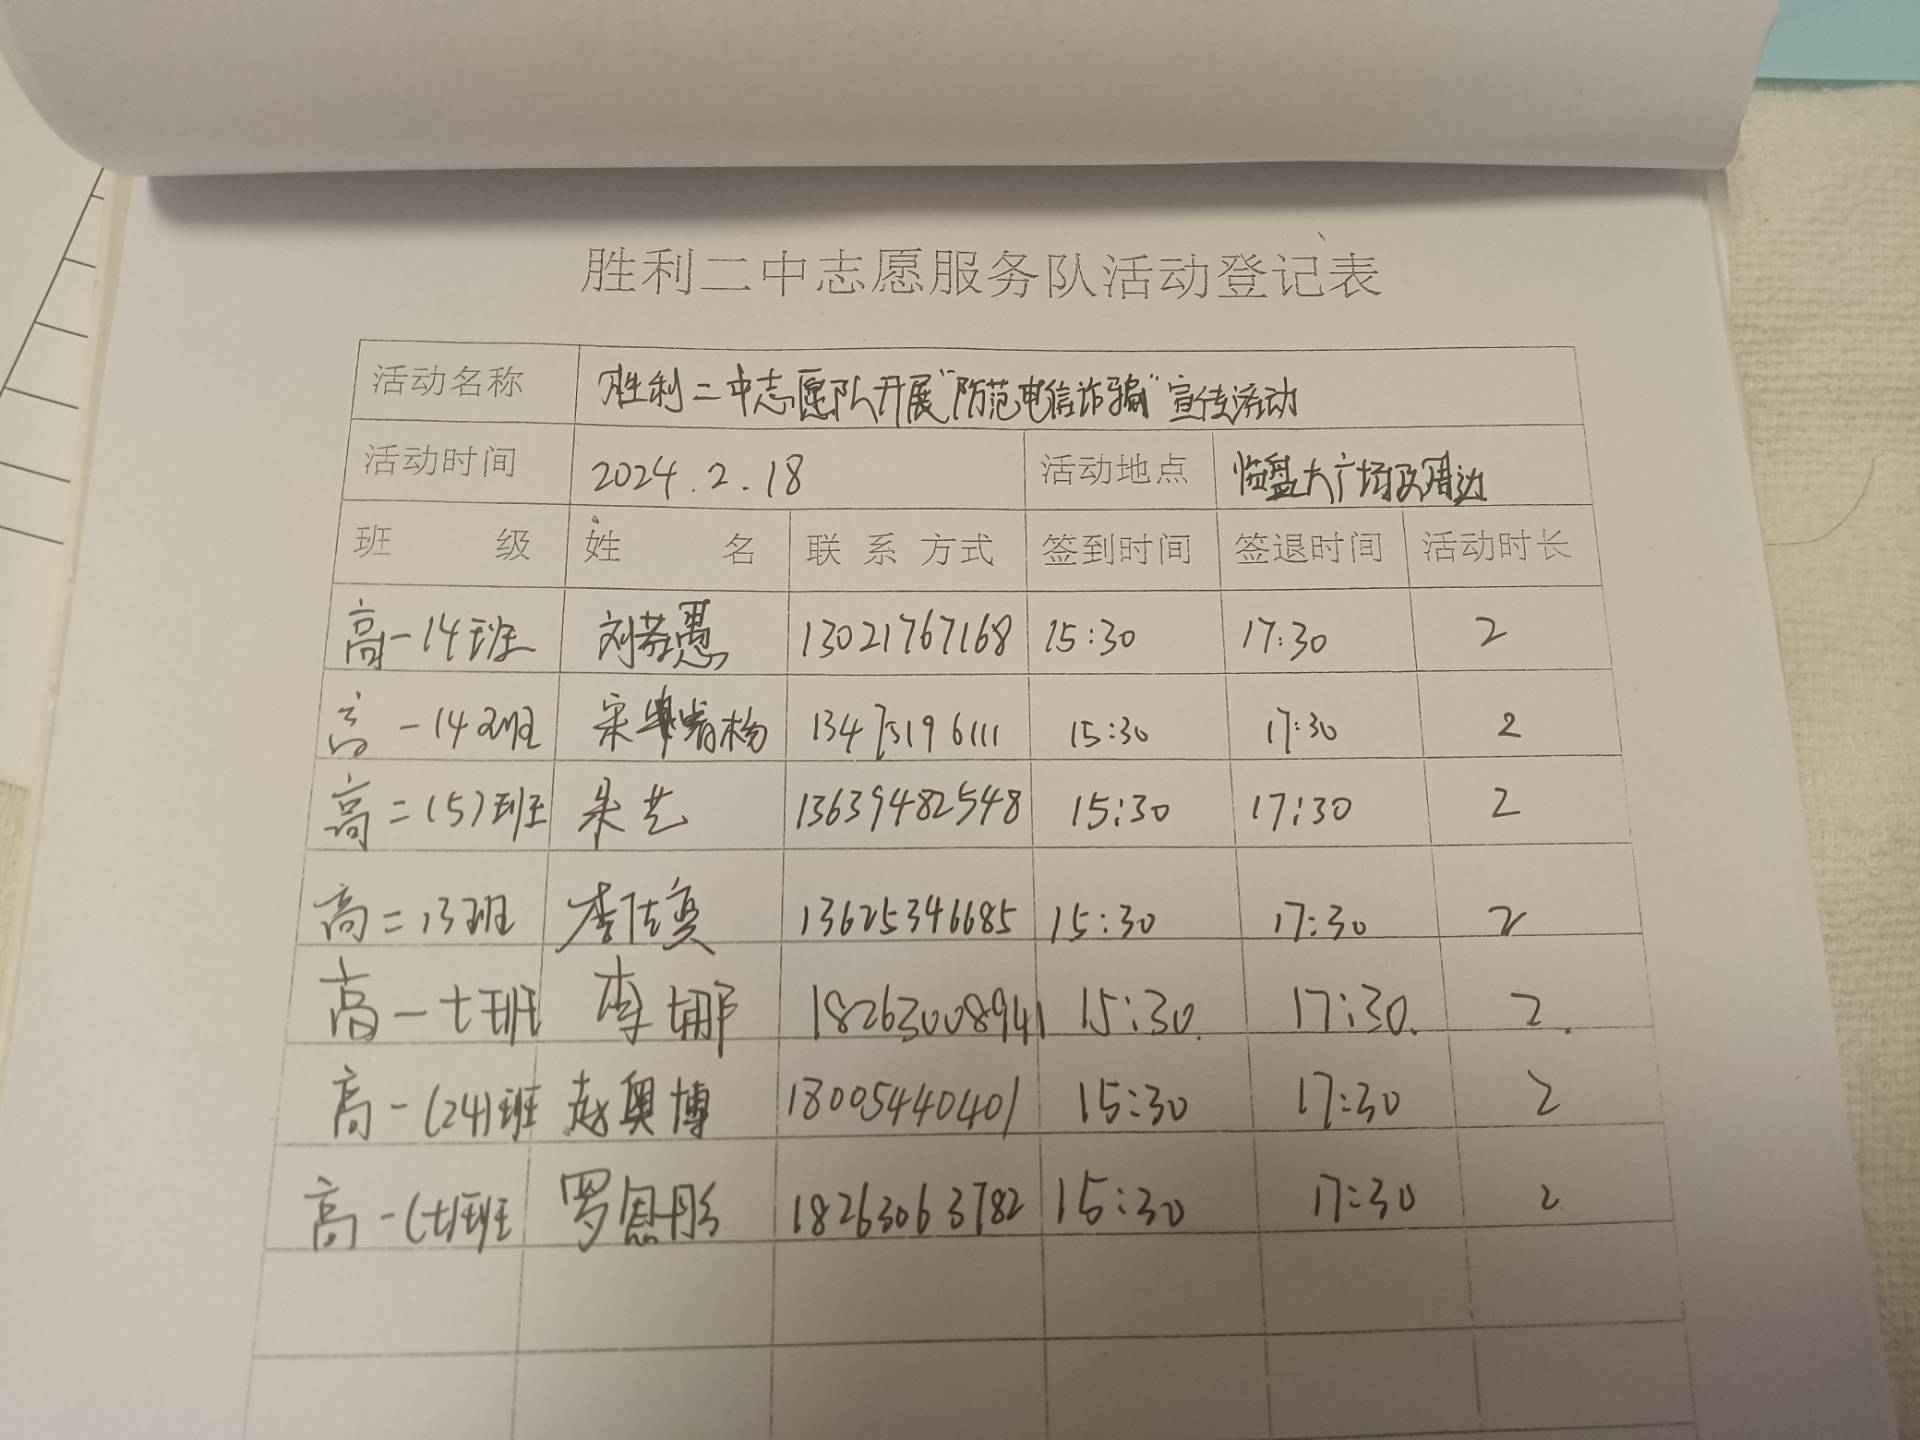 胜利二中志愿服务队活动登记表
活动名称 胜利二中志愿队开展"防范电信诈骗"宣传活动
活动时间 2024.2.18 活动地点 临盘大广场及周边
班级 姓名 联系方式 签到时间 签退时间 活动时长
高一14班 刘若愚 13021767168 15:30 17:30 2
高一14班 宋 13475196111 15:30 17:30 2
高二(5)班 朱艺 13639482548 15:30 17:30 2
高二13班 李 13625346685 15:30 17:30 2
高一七班 李娜 18263008941 15:30. 17:30. 2.
高一(24)班 赵奥博 18005440401 15:30 17:30 2
高一(七)班 罗恩彤 18263063782 15:30 17:30 2